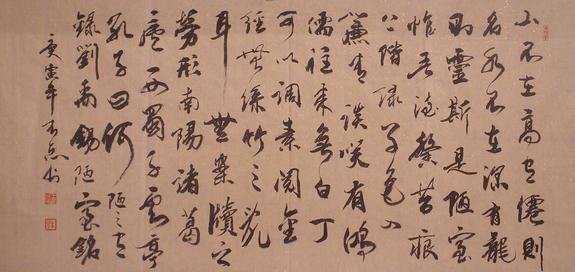 山不在高有僊則
名水不在深有龍
則靈斯是陋室
惟吾德馨苔痕
上階緑草色入
簾青談笑有鴻
儒往来無白丁
可以調素閱金
經無絲竹之亂
耳無案牘之
勞形南陽諸葛
廬西蜀子雲亭
孔子曰何陋之有
錄劉禹錫陋室銘
庚寅年